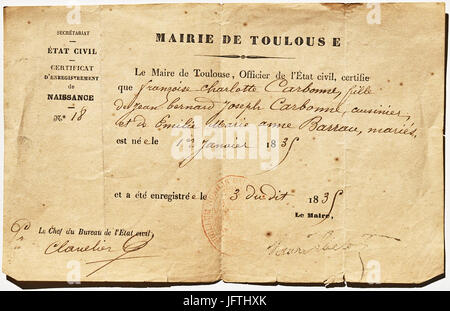 SECRÉTARIAT
ÉTAT CIVIL
CERTIFICAT
D'ENREGISTREMENT
de
NAISSANCE
N.° 18
MAIRIE DE TOULOUSE
Le Maire de Toulouse, Officier de l'État civil, certifie
que françoise charlotte Carbonne, fille
de jean bernard joseph Carbonne, cuisinier,
et de Emilie Marie anne Barrau, mariés,
est né e le 1er janvier 1835
et a été enregistré e le 3 dudit 1835
Le Maire,
Le Chef du Bureau de l'Etat civil,
Clauelier
alamy stock photo